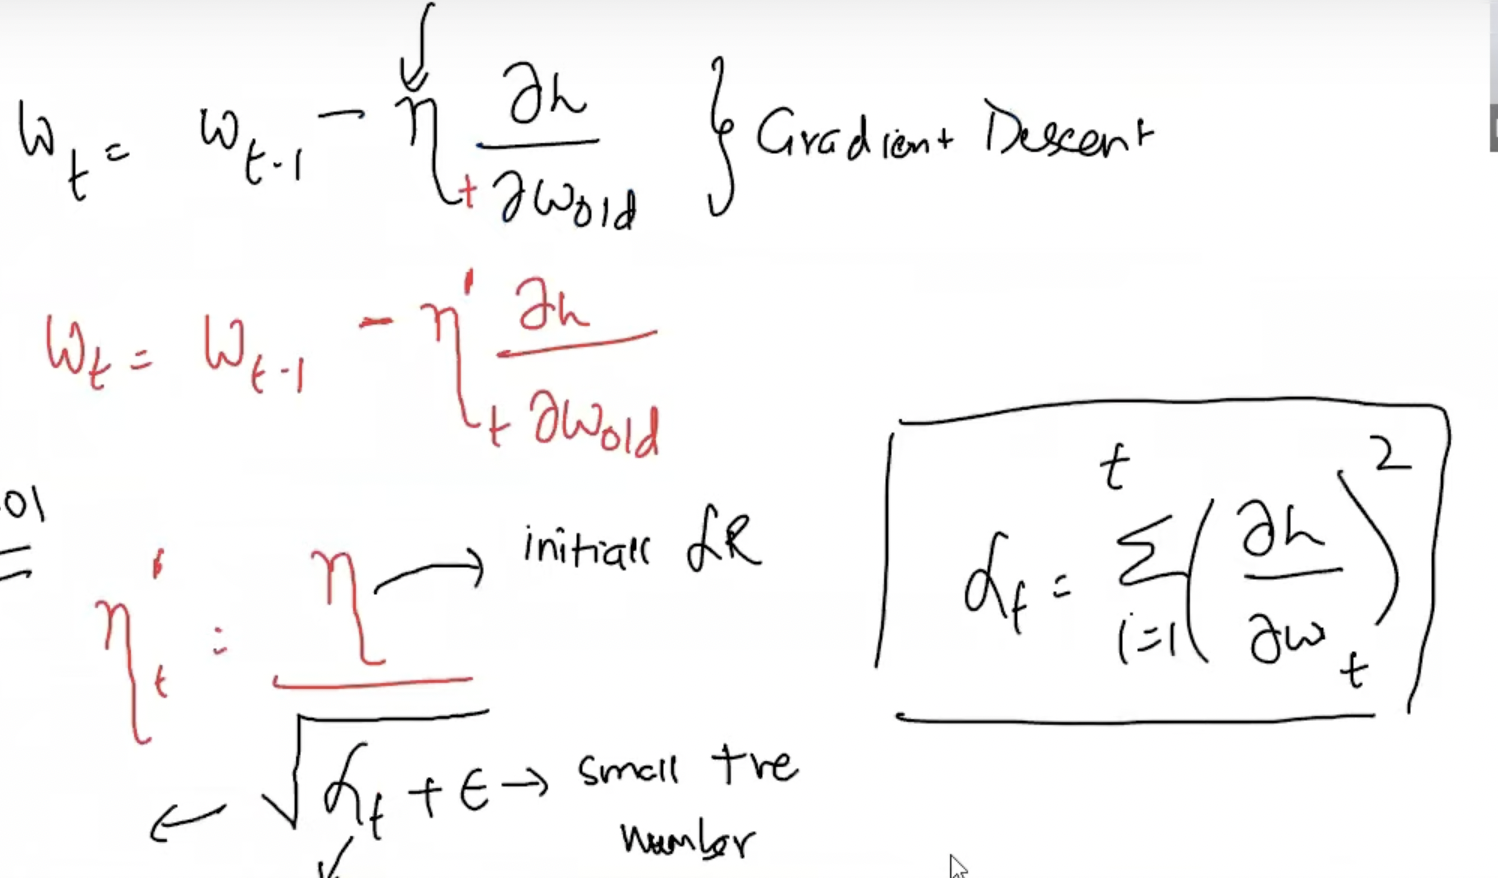 w_t = w_{t-1} - η_t ∂h/∂w_old } Gradient Descent
w_t = w_{t-1} - η'_t ∂h/∂w_old
01
η'_t = η/√(α_t + ε)
η → initial LR
ε → small +ve
number
α_t = Σ_{i=1}^{t} (∂h/∂w_t)^2